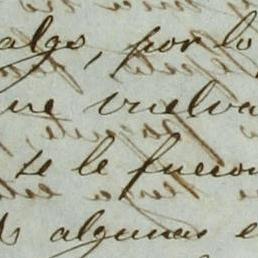 algo, por lo
ue vuelva
se le fueron
algunas e